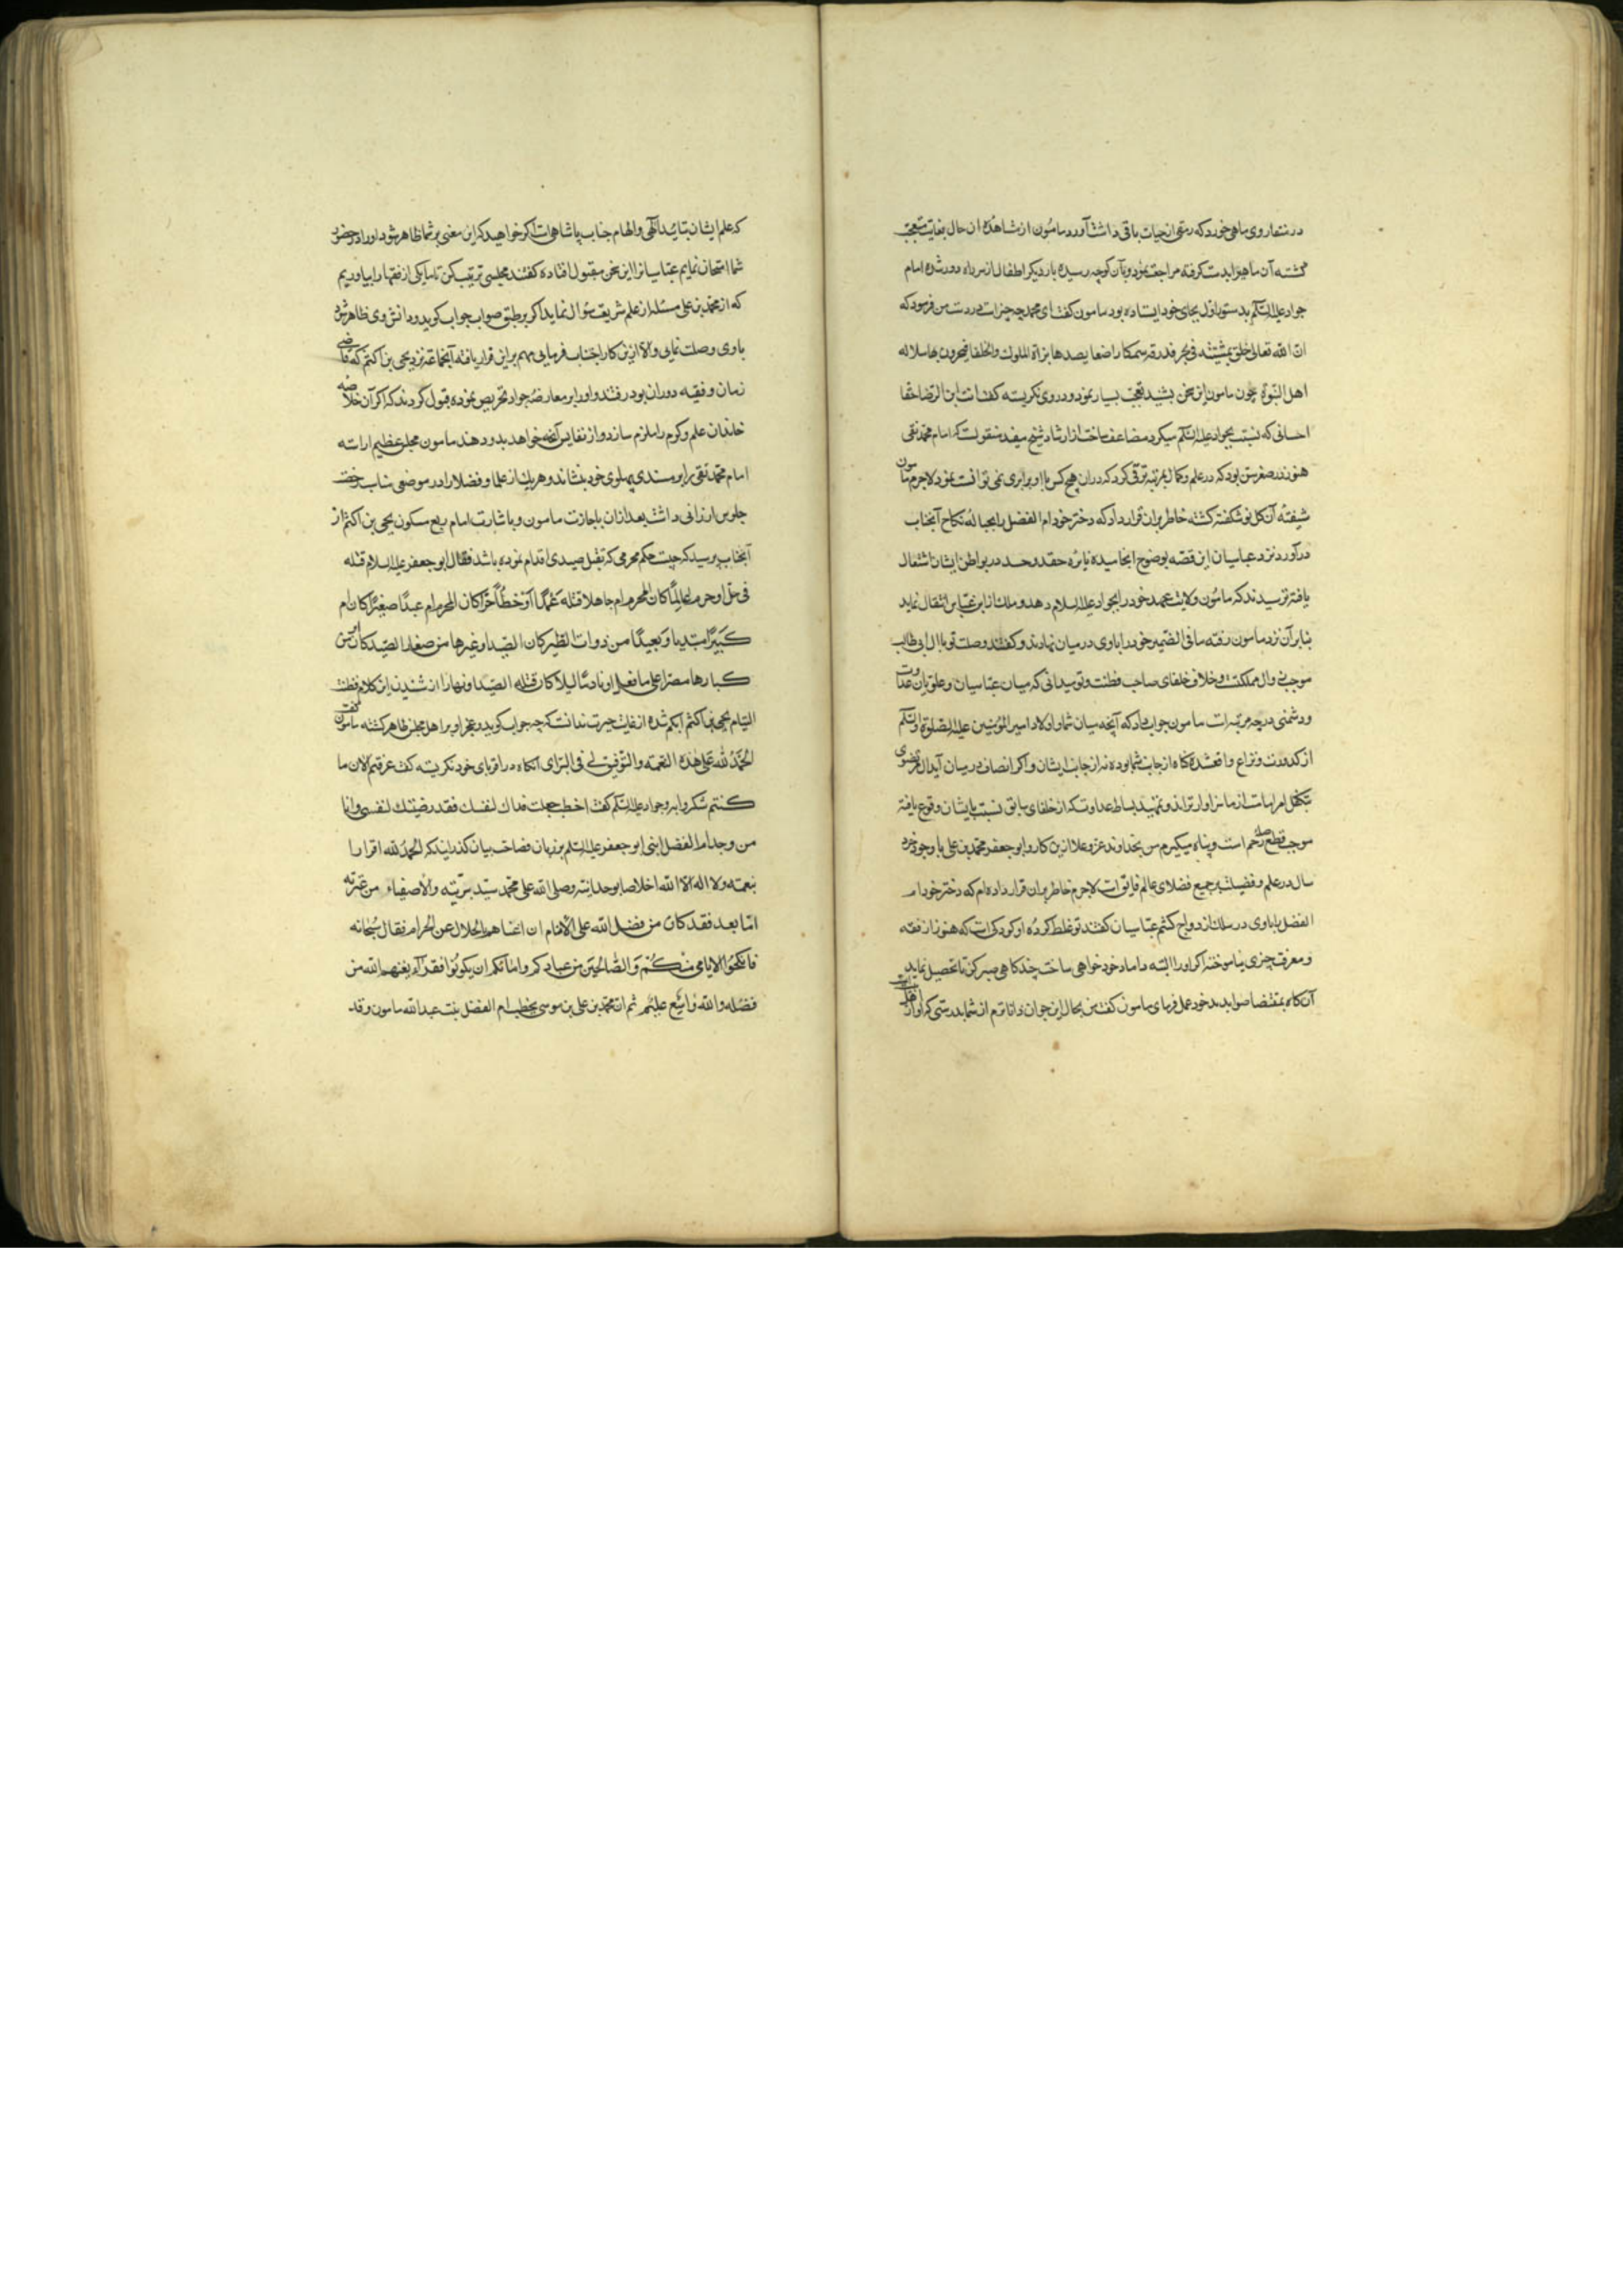 در منقار وی ماهی خورد که رمقی از حیات باقی داشت آورد مامون از مشاهدهٔ ان حال بغایت متعجب
کشته آن ماهی را بدست کرفته مراجعت نمود و بآن کوچه رسیده بار دیکر اطفال از سر راه دور شده امام
جواد علیه السلام بدستور اول بجای خود ایستاده بود مامون کفت ای محمد چه چیز است در دست من فرمود که
ان الله تعالی خلق بمشیته فی بحر قدرته سمکا صغارا یصیدها بزاة الملوک والخلفا فیختبرون بها سلاله
اهل النبوة چون مامون این سخن بشنید تعجب بسیار نمود و در وی نکریسته کفت انت ابن الرضا حقا
احسانی که نسبت بجواد علیه السلام میکرد مضاعف ساخت از ارشاد شیخ مفید منقولست که امام محمد تقی
هنوز در صغر سن بود که در علم و کمال بمرتبه ترقی کرد که در ان هیچ کس با او برابری نمی توانست نمود لاجرم مامون
شیفته آن کل نو شکفته کشته خاطر بران قرار داد که دختر خود ام الفضل را بحباله نکاح آنجناب
درآورد نزد عباسیان این قصه بوضوح انجامیده نایره حقد و حسد در بواطن ایشان اشتعال
یافته ترسیدند که مامون ولایت عهد خود را بجواد علیه السلام دهد و ملک از بنی عباس انتقال نماید
بنابر آن نزد مامون رفته ما فی الضمیر خود را با وی درمیان نهادند و کفتند وصلت تو با ال ابی طالب
موجب زوال مملکتست و خلاف خلفای صاحب فطنت و تو میدانی که میان عباسیان و علویان عداوت
و دشمنی در چه مرتبه است مامون جواب داد که آنچه میان شما و اولاد امیر المؤمنین علیه الصلوة والسلام
از کدورت و نزاع واقع شده کناه از جانب شما بوده نه از جانب ایشان و اکر انصاف درمیان آید ال مرتضوی
بتکفل امر امامت از ما سزاوارترند و تمهید بساط عداوت که از خلفای سابق نسبت بایشان وقوع یافته
موجب قطع صله رحم است و پناه میکیرم من بخداوند عز و علا ازین کار و ابو جعفر محمد بن علی با وجود خرد
سال در علم و فضیلت بر جمیع فضلای عالم فایق است لاجرم خاطر بران قرار داده ام که دختر خود ام
الفضل را با وی در سلک ازدواج کشم عباسیان کفتند تو غلط کرده او کودکی است که هنوز از فقه
و معرفت چیزی نیاموخته اکر او را البته داماد خود خواهی ساخت چند کاهی صبر کن تا تحصیل نماید
آن کاه بمقتضا صوابدید خود عمل فرمای مامون کفت من بحال این جوان داناترم از شما بدرستی که او از
که علم ایشان بتایید الهی و الهام جناب پاشاهی است اکر خواهید که این معنی بر شما ظاهر شود او را در حضور
شما امتحان نمایم عباسیانرا این سخن مقبول افتاده کفتند مجلسی ترتیب کن تا ما یکی از فقها را بیاوریم
که از محمد بن علی مسئله از علم شریعت سؤال نماید اکر بر طبق صواب جواب کوید و دانش وی ظاهر شود
با وی وصلت نمایی و الا ازین کار اجتناب فرمایی مهم براین قرار یافته آنجماعه نزد یحیی بن اکثم که قاضی
زمان و فقیه دوران بود رفتند و او را بر معارضه جواد تحریص نموده قبول کردند که اکر آن خلاصه
خاندان علم و کرم را ملزم سازد و از نفایس آنچه خواهد بدو دهند مامون مجلس عظیم اراسته
امام محمد تقی را بر مسندی پهلوی خود بنشاند و هریک از علما و فضلا را در موضعی مناسب رخصت
جلوس ارزانی داشت بعد ازان باجازت مامون و باشارت امام ربع مسکون یحیی بن اکثم از
آنجناب پرسید که چیست حکم محرمی که بقتل صیدی اقدام نموده باشد فقال ابو جعفر علیه السلام قتله
فی حل او حرم عالمًا کان المحرم ام جاهلا قتله عمدًا او خطأً حرًا کان المحرم ام عبدًا صغیرًا کان ام
کبیرًا مبتدیا او معیدًا من ذوات الطیر کان الصید او غیرها من صغار الصید کان ام من
کبارها مصرا علی ما فعل او نادمًا لیلا کان قتله الصید او نهارا از شنیدن این کلام فطنت
التیام یحیی بن اکثم ابکم شده از غایت حیرت ندانست که چه جواب کوید و عجز او بر اهل مجلس ظاهر کشته مامون کفت
الحمد لله علی هذه النعمة والتوفیق لی فی الرای انکاه در اقربای خود نکریسته کفت عرفتم الان ما
کنتم تنکرونه و بجواد علیه السلام کفت اخطب جعلت فداک لنفسک فقد رضیتک لنفسی وانا
مزوجک ام الفضل ابنتی ابو جعفر علیه السلم بزبان فصاحت بیان کذرانید که الحمد لله اقرارا
بنعمته ولا اله الا الله اخلاصا بوحدانیته وصلی الله علی محمد سید بریته والاصفیاء من عترته
اما بعد فقد کان من فضل الله علی الانام ان اغناهم بالحلال عن الحرام فقال سبحانه
فانکحوا الایامی منکم والصالحین من عبادکم وامائکم ان یکونوا فقراء یغنهم الله من
فضله والله واسع علیم ثم ان محمد بن علی بن موسی یخطب ام الفضل بنت عبد الله مامون وقد